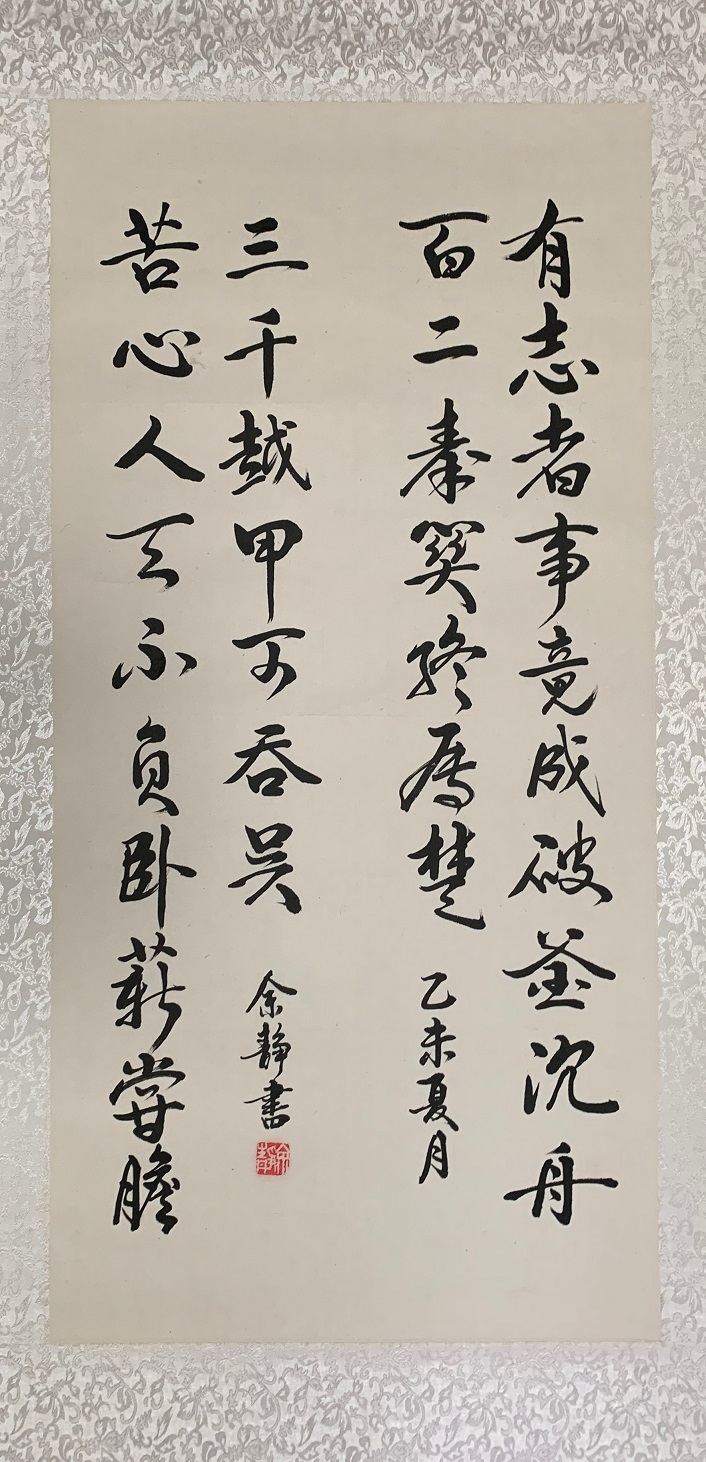 有志者事竟成破釜沉舟
百二秦關終属楚
乙未夏月
苦心人天不負卧薪嘗膽
三千越甲可吞吴
余静書